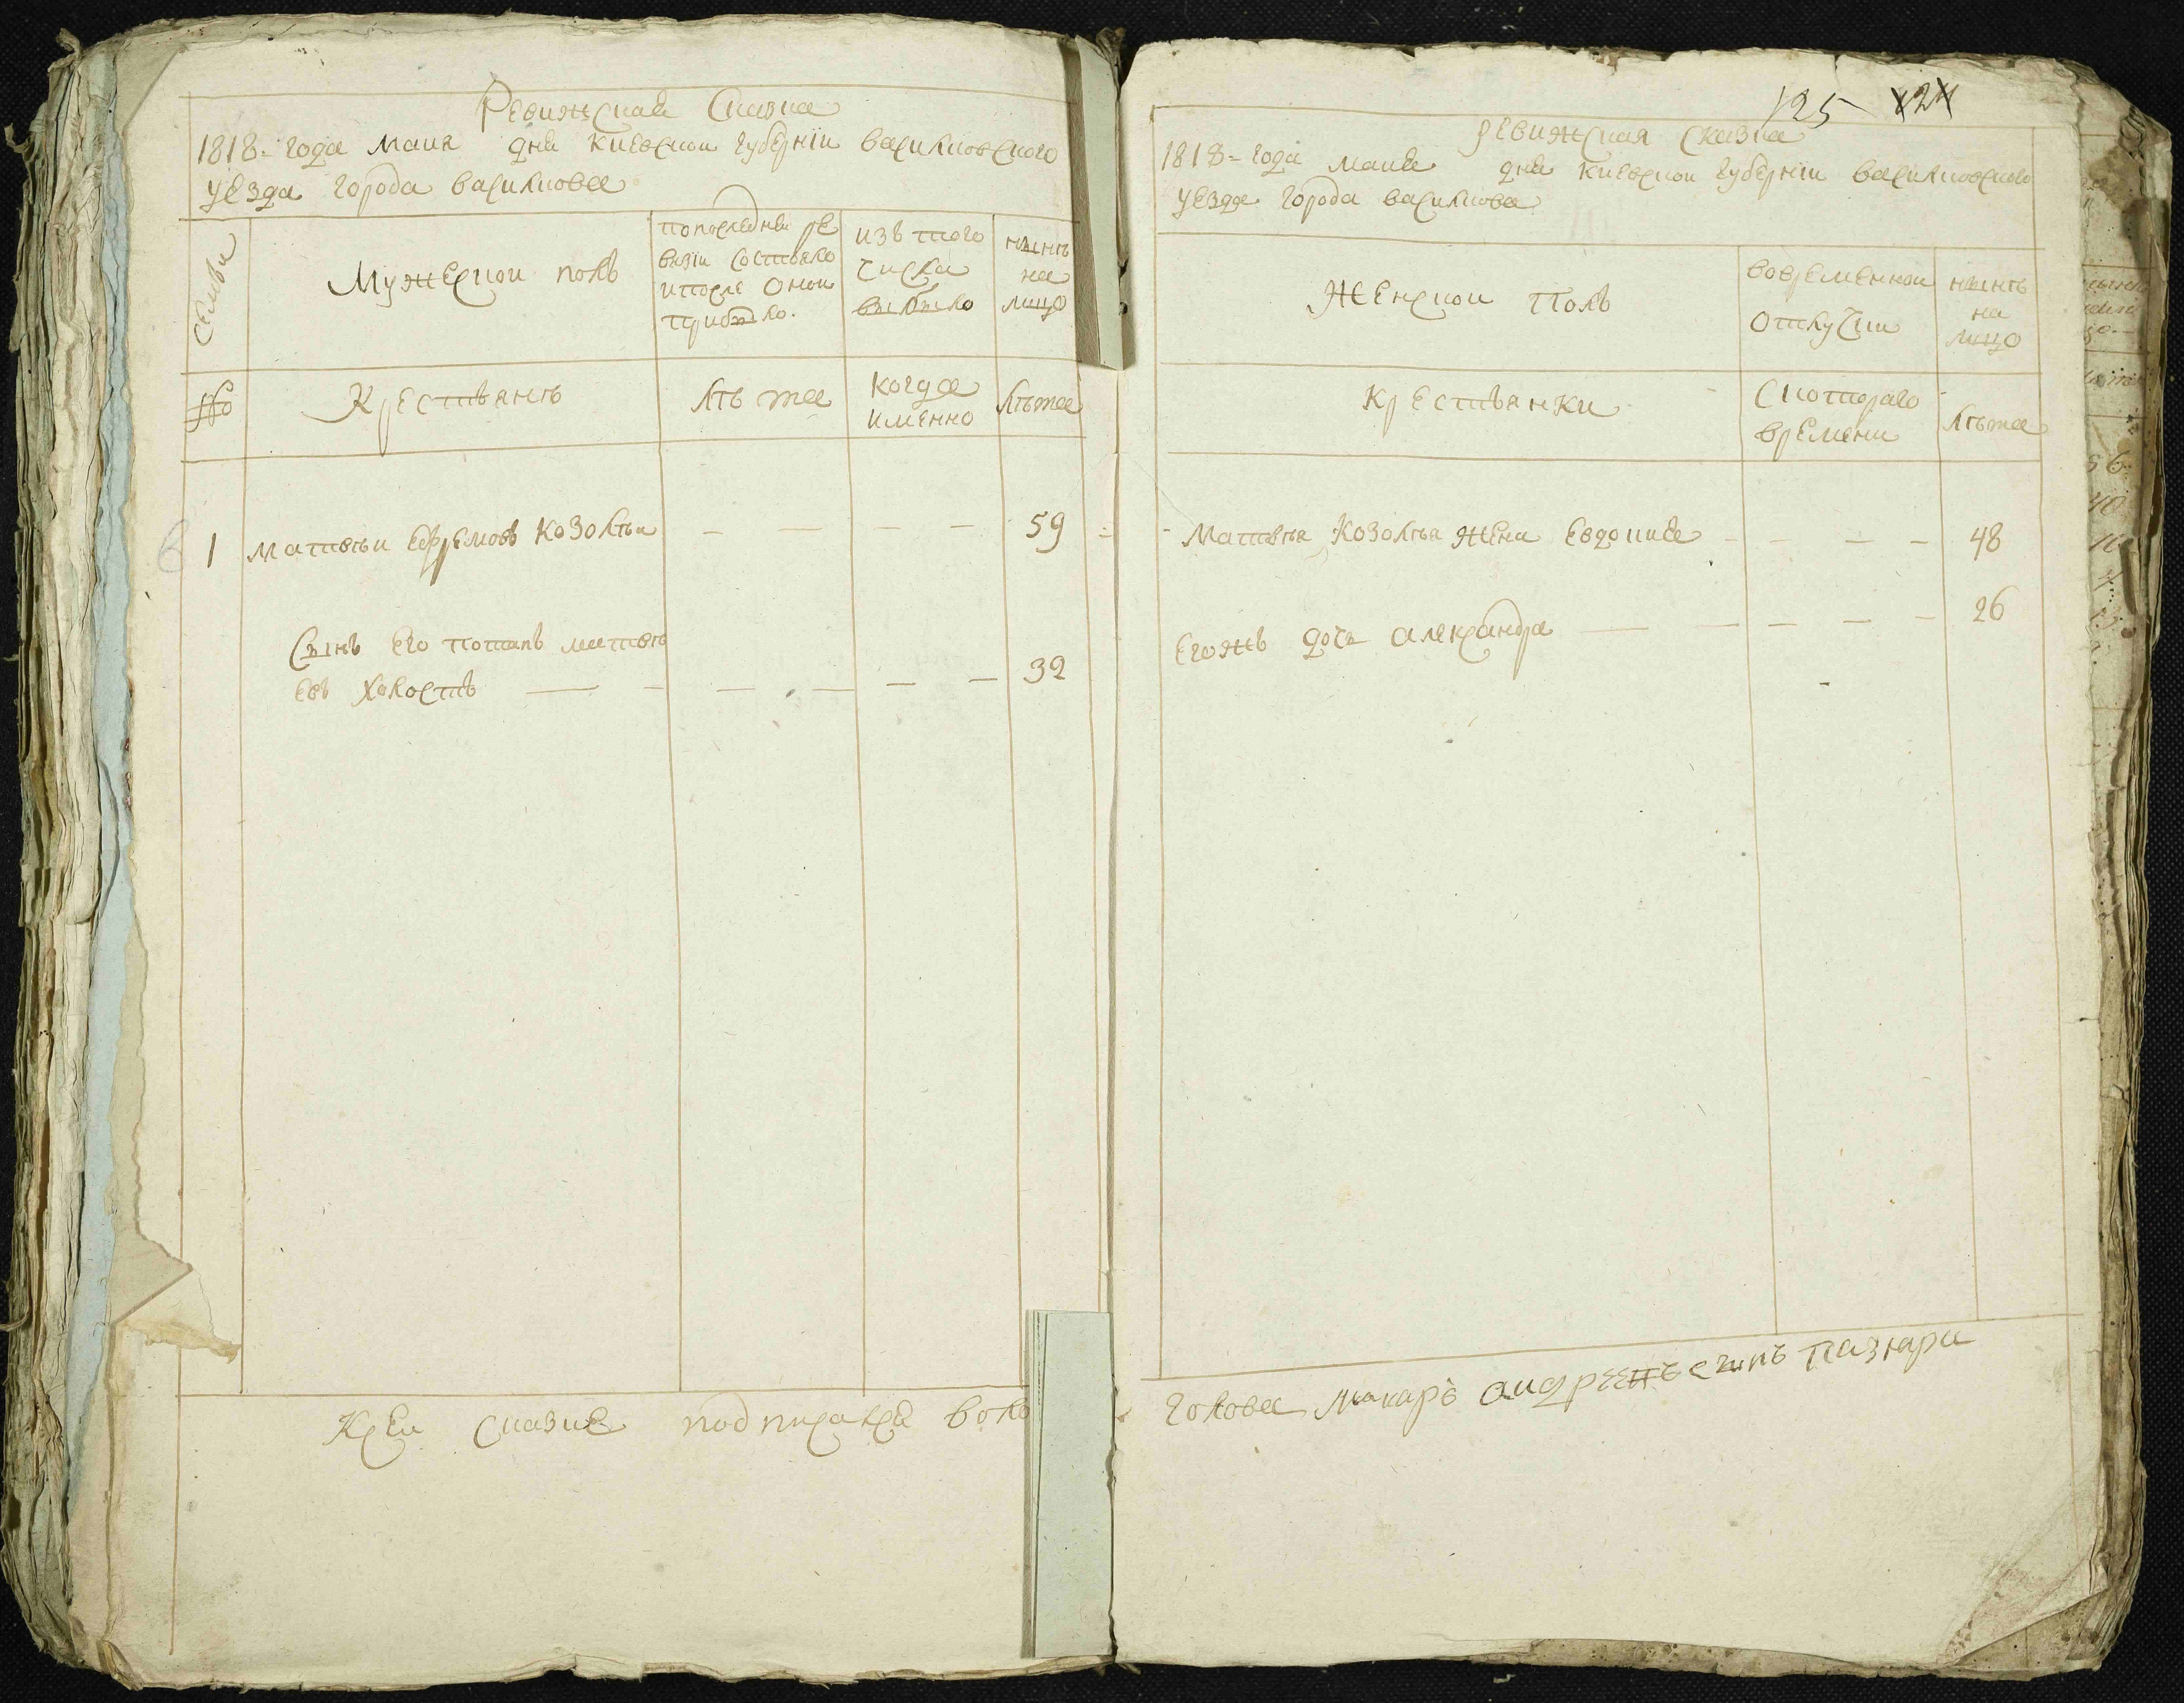 Ревижская Сказка
1818- года маия дня Киевской губернїи василковского
уезда города василкова
Семьи
Мужеской полъ
попоследней ре
визїи состояло
ипосле оной
прибыло.
изъ того
числа
выбыло
нынѣ
на
лицо
№
Крестьянѣ
лѣта
когда
именно
лѣта
1 матвѣй ефремовъ козолѣй — — — — 59
Сынъ его потапъ матвѣ
евъ холостъ — — — — — — 32
Къ сей сказке подписался
125 124
ревижская сказка
1818- года маия дня Киевской губернїи василковского
уезда города василкова
Женской полъ
вовременной
отлучки
нынѣ
на
лицо
Крестьянки
скоторого
времени
лѣта
Матвѣя Козолѣя жена Евдокия — — — — 48
Егожъ дочь александра — — — — — 26
голова макаръ